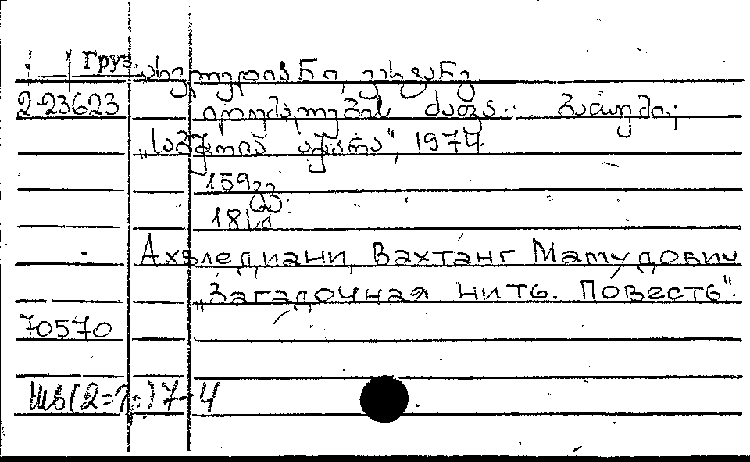 Груз.
ახვლედიანი, ვახტანგ
2-23623 იდუმალების ძაფი. ბათუმი,
„საბჭოთა აჭარა", 1974
159 გვ.
18 სმ
Ахвледиани, Вахтанг Матудович
„Загадочная нить. Повесть".
70570